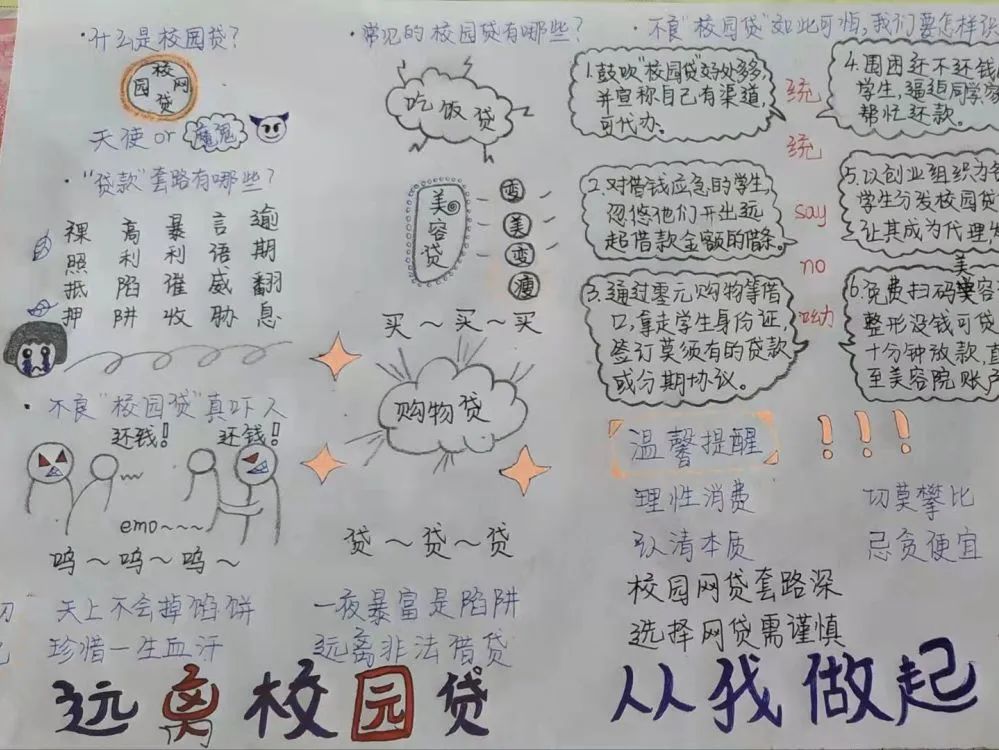 ·什么是校园贷?
校园网贷
天使or魔鬼
·"贷款"套路有哪些?
裸照抵押
高利陷阱
暴利催收
言语威胁
逾期翻息
·不良"校园贷"真吓人
还钱! 还钱!
emo~~~
呜~呜~呜~
天上不会掉馅饼
珍惜一生血汗
·常见的校园贷有哪些?
吃饭贷
美容贷
变美变瘦
买~买~买
购物贷
贷~贷~贷
一夜暴富是陷阱
远离非法借贷
·不良"校园贷"如此可怕,我们要怎样识
1.鼓吹"校园贷"好处多多,
并宣称自己有渠道,
可代办。
2.对借钱应急的学生,
忽悠他们开出远
起借款金额的借条。
3.通过零元购物等借
口,拿走学生身份证,
签订莫须有的贷款
或分期协议。
统
统
say
no
呦
4.围困还不还钱
学生,逼迫同学家
帮忙还款。
5.以创业组织为
学生分发校园贷
让其成为代理,
6.免费扫码美容
整形没钱可贷
十分钟放款,直
至美容院账户
温馨提醒
!!!
理性消费 切莫攀比
认清本质 忌贪便宜
校园网贷套路深
选择网贷需谨慎
远离校园贷 从我做起